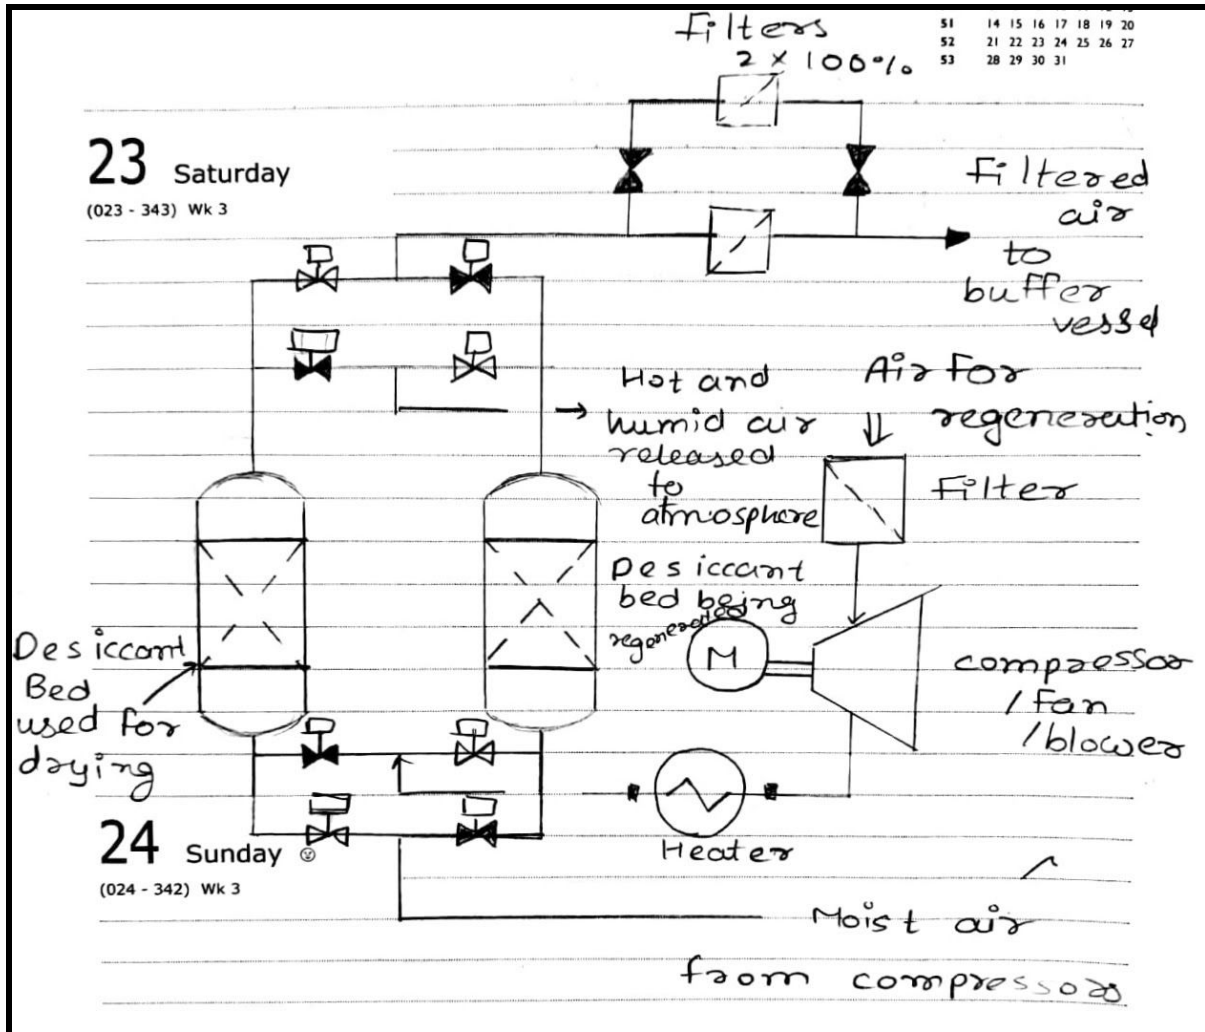 Filters
2 × 100%
51 14 15 16 17 18 19 20
52 21 22 23 24 25 26 27
53 28 29 30 31
23 Saturday
(023 - 343) Wk 3
Filtered
air
to
buffer
vessel
Hot and
humid air
released
to
atmosphere
Air for
regeneration
Filter
Desiccant
bed being
regenerated
M
compressor
/fan
/blower
Desiccant
Bed
used for
drying
Heater
24 Sunday
(024 - 342) Wk 3
Moist air
from compressors